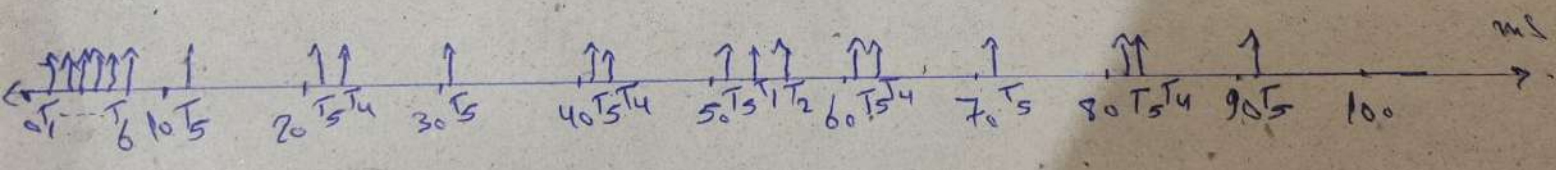 ms
0 T1 ---- T6 10 T5 20 T5 T4 30 T5 40 T5 T4 50 T5 T1 T2 60 T5 T4 70 T5 80 T5 T4 90 T5 100